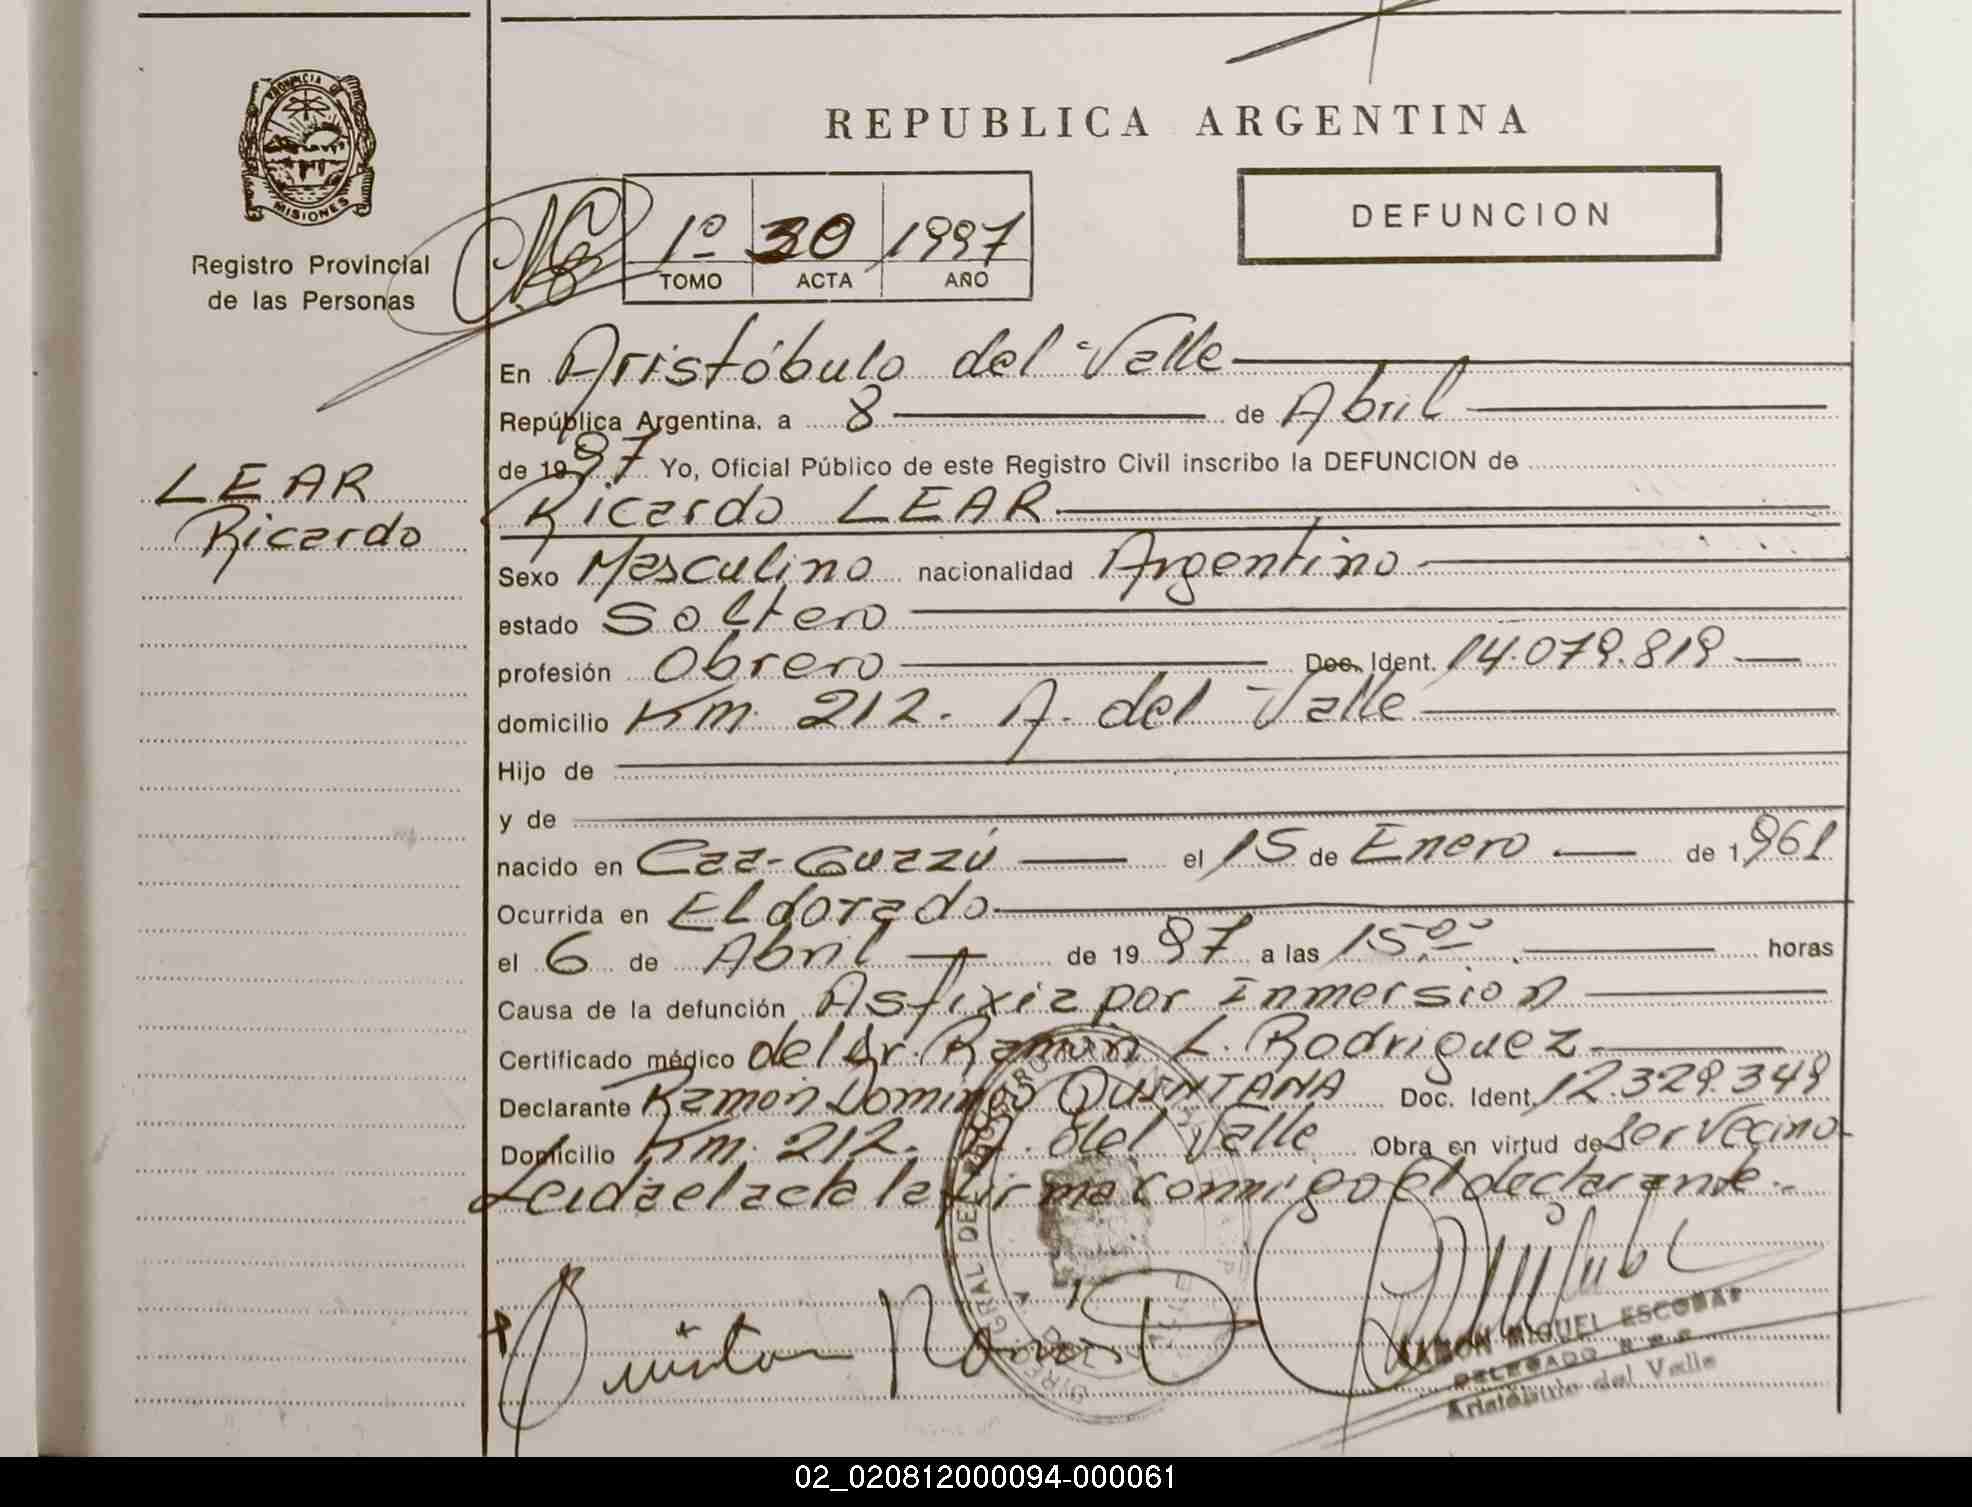 PROVINCIA DE
MISIONES
Registro Provincial
de las Personas
LEAR
Ricardo
REPUBLICA ARGENTINA
DEFUNCION
1º 30 1997
TOMO ACTA AÑO
En Aristóbulo del Valle
República Argentina, a 8 de Abril
de 1997 Yo, Oficial Público de este Registro Civil inscribo la DEFUNCION de
Ricardo LEAR
Sexo Masculino nacionalidad Argentino
estado Soltero
profesión Obrero Doc. Ident. 14.079.819
domicilio Km. 212. A. del Valle
Hijo de
y de
nacido en Caa-Guazú el 15 de Enero de 1961
Ocurrida en Eldorado
el 6 de Abril de 1997 a las 15.00 horas
Causa de la defunción Asfixia por Inmersion
Certificado médico del Dr. Ramón L. Rodriguez
Declarante Ramón Domingo QUINTANA Doc. Ident. 12.329.349
Domicilio Km. 212. A. del Valle Obra en virtud de ser Vecino
Leida el acta la firma conmigo el declarante.-
RAMON MIGUEL ESCOBAR
DELEGADO R.P.P.
Aristóbulo del Valle
02_020812000094-000061